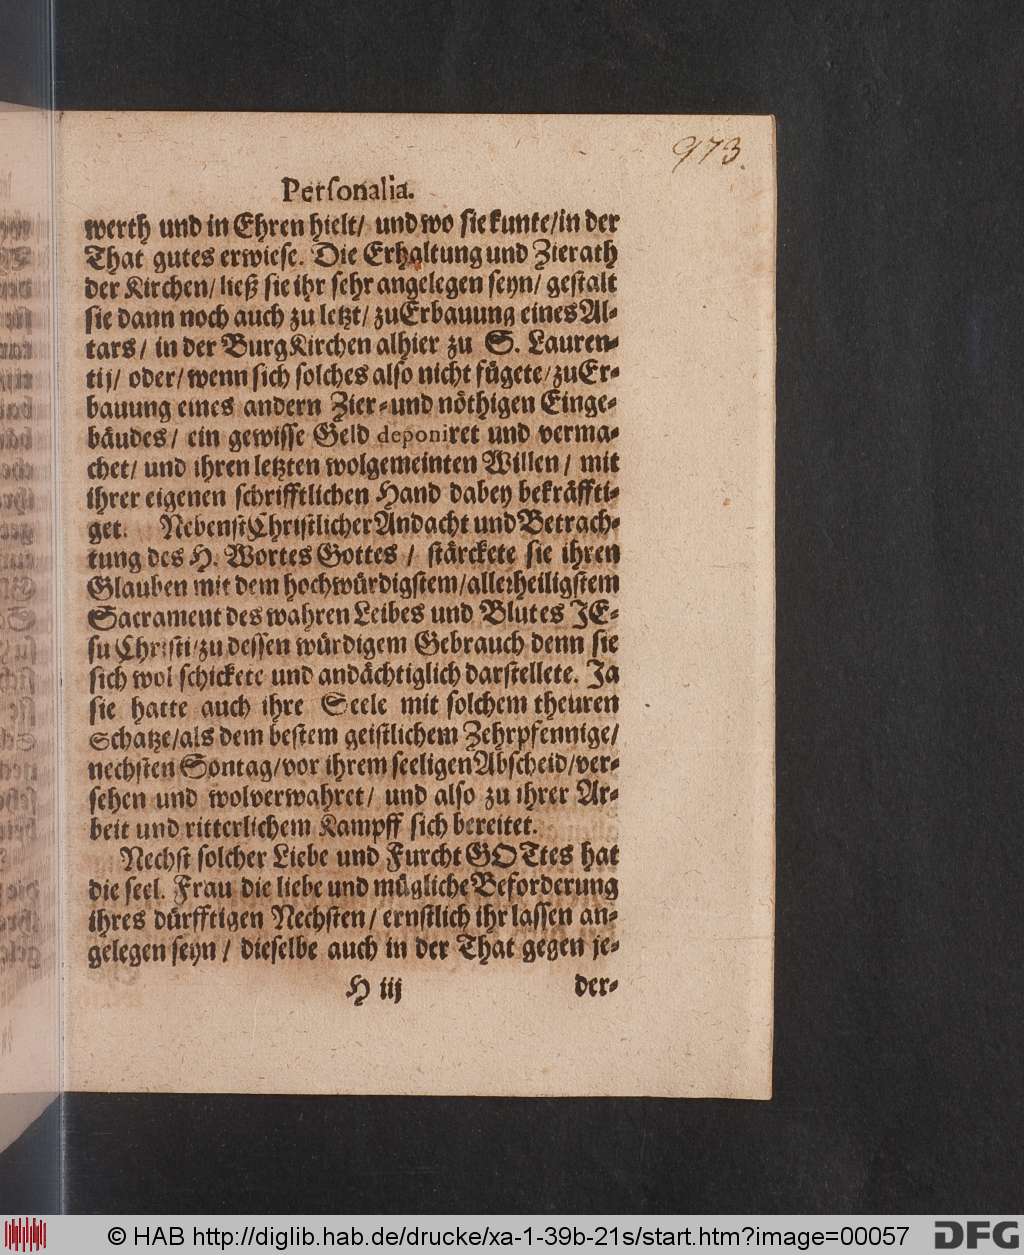 973.
Personalia.
werth und in Ehren hielt/ und wo sie kunte/in der
That gutes erwiese. Die Erhaltung und Zierath
der Kirchen/ ließ sie ihr sehr angelegen seyn/ gestalt
sie dann noch auch zu letzt/ zu Erbauung eines Al-
tars/ in der BurgKirchen alhier zu S. Lauren-
tij/ oder/ wenn sich solches also nicht fügete/ zu Er-
bauung eines andern Zier- und nöthigen Einge-
bäudes/ ein gewisse Geld deponiret und verma-
chet/ und ihren letzten wolgemeinten Willen/ mit
ihrer eigenen schrifftlichen Hand dabey bekräffti-
get. Nebenst Christlicher Andacht und Betrach-
tung des H. Wortes Gottes / stärckete sie ihren
Glauben mit dem hochwürdigstem/allerheiligstem
Sacrament des wahren Leibes und Blutes JE-
su Christi/zu dessen würdigem Gebrauch denn sie
sich wol schickete und andächtiglich darstellete. Ja
sie hatte auch ihre Seele mit solchem theuren
Schatze/als dem bestem geistlichem Zehrpfennige/
nechsten Sontag/vor ihrem seeligen Abscheid/ver-
sehen und wolverwahret/ und also zu ihrer Ar-
beit und ritterlichem Kampff sich bereitet.
Nechst solcher Liebe und Furcht GOTtes hat
die seel. Frau die liebe und mügliche Beforderung
ihres dürfftigen Nechsten/ ernstlich ihr lassen an-
gelegen seyn / dieselbe auch in der That gegen je-
H iij der-
© HAB http://diglib.hab.de/drucke/xa-1-39b-21s/start.htm?image=00057 DFG